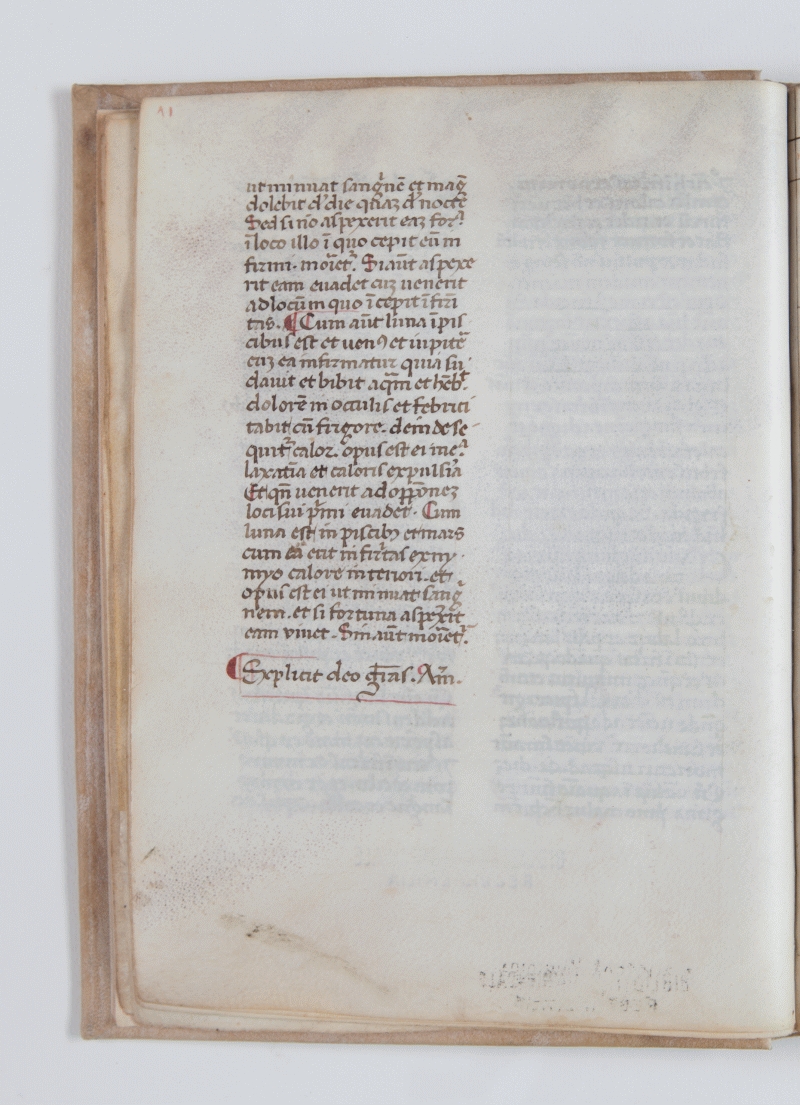 ut minuat sang̃nẽ et mag̃
dolebit d̃ die q̃ꝫ d̃ nocte
Sed si nõ aspexerit eaꝫ for
ĩ loco illo ĩ quo cepit eũ in
firmi. moriet᷑. Si aũt aspexe
rit eam euadet cuꝫ uenerit
ad locũ in quo ĩcepit ĩfir̃i
tas. ¶ Cum aũt luna ĩ pis
cibus est et uenꝰ et iupitẽ
cuꝫ ea infirmatur quia su
dauit et bibit aq̃m et hẽb᷑.
dolorẽ in occulis et febrici
tabit cũ frigore. deinde se
quit᷑ calor. opus est ei me
laxatĩa et caloris expulsĩa
Et qñ uenerit ad opp̃onez
loci sui p̃mi euadet. Cum
luna est in piscibꝰ et mars
cum eã erit infir̃tas ex ny
myo calore interiori. et
opus est ei ut minuat sang̃
nem. et si fortuna aspexit
eam viuet. Sin aũt moriet᷑.
¶ Explicit deo grãs. Am̃.